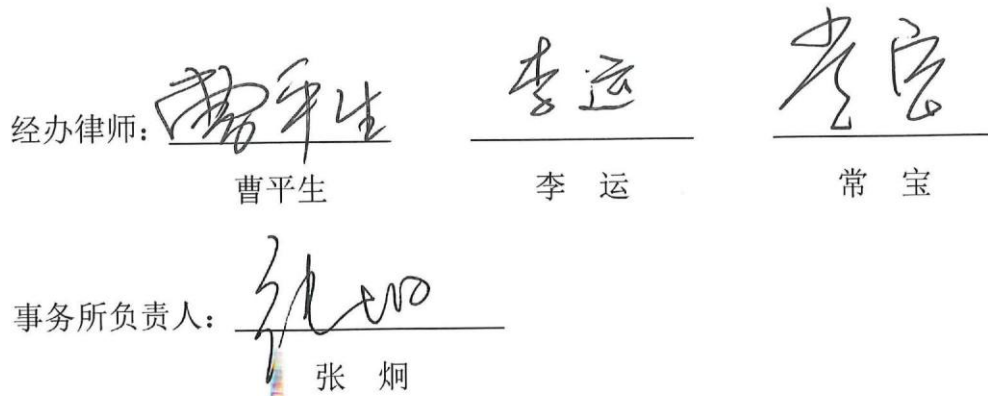 经办律师：曹平生 李运 常宝
曹平生 李 运 常 宝
事务所负责人：张炯
张 炯